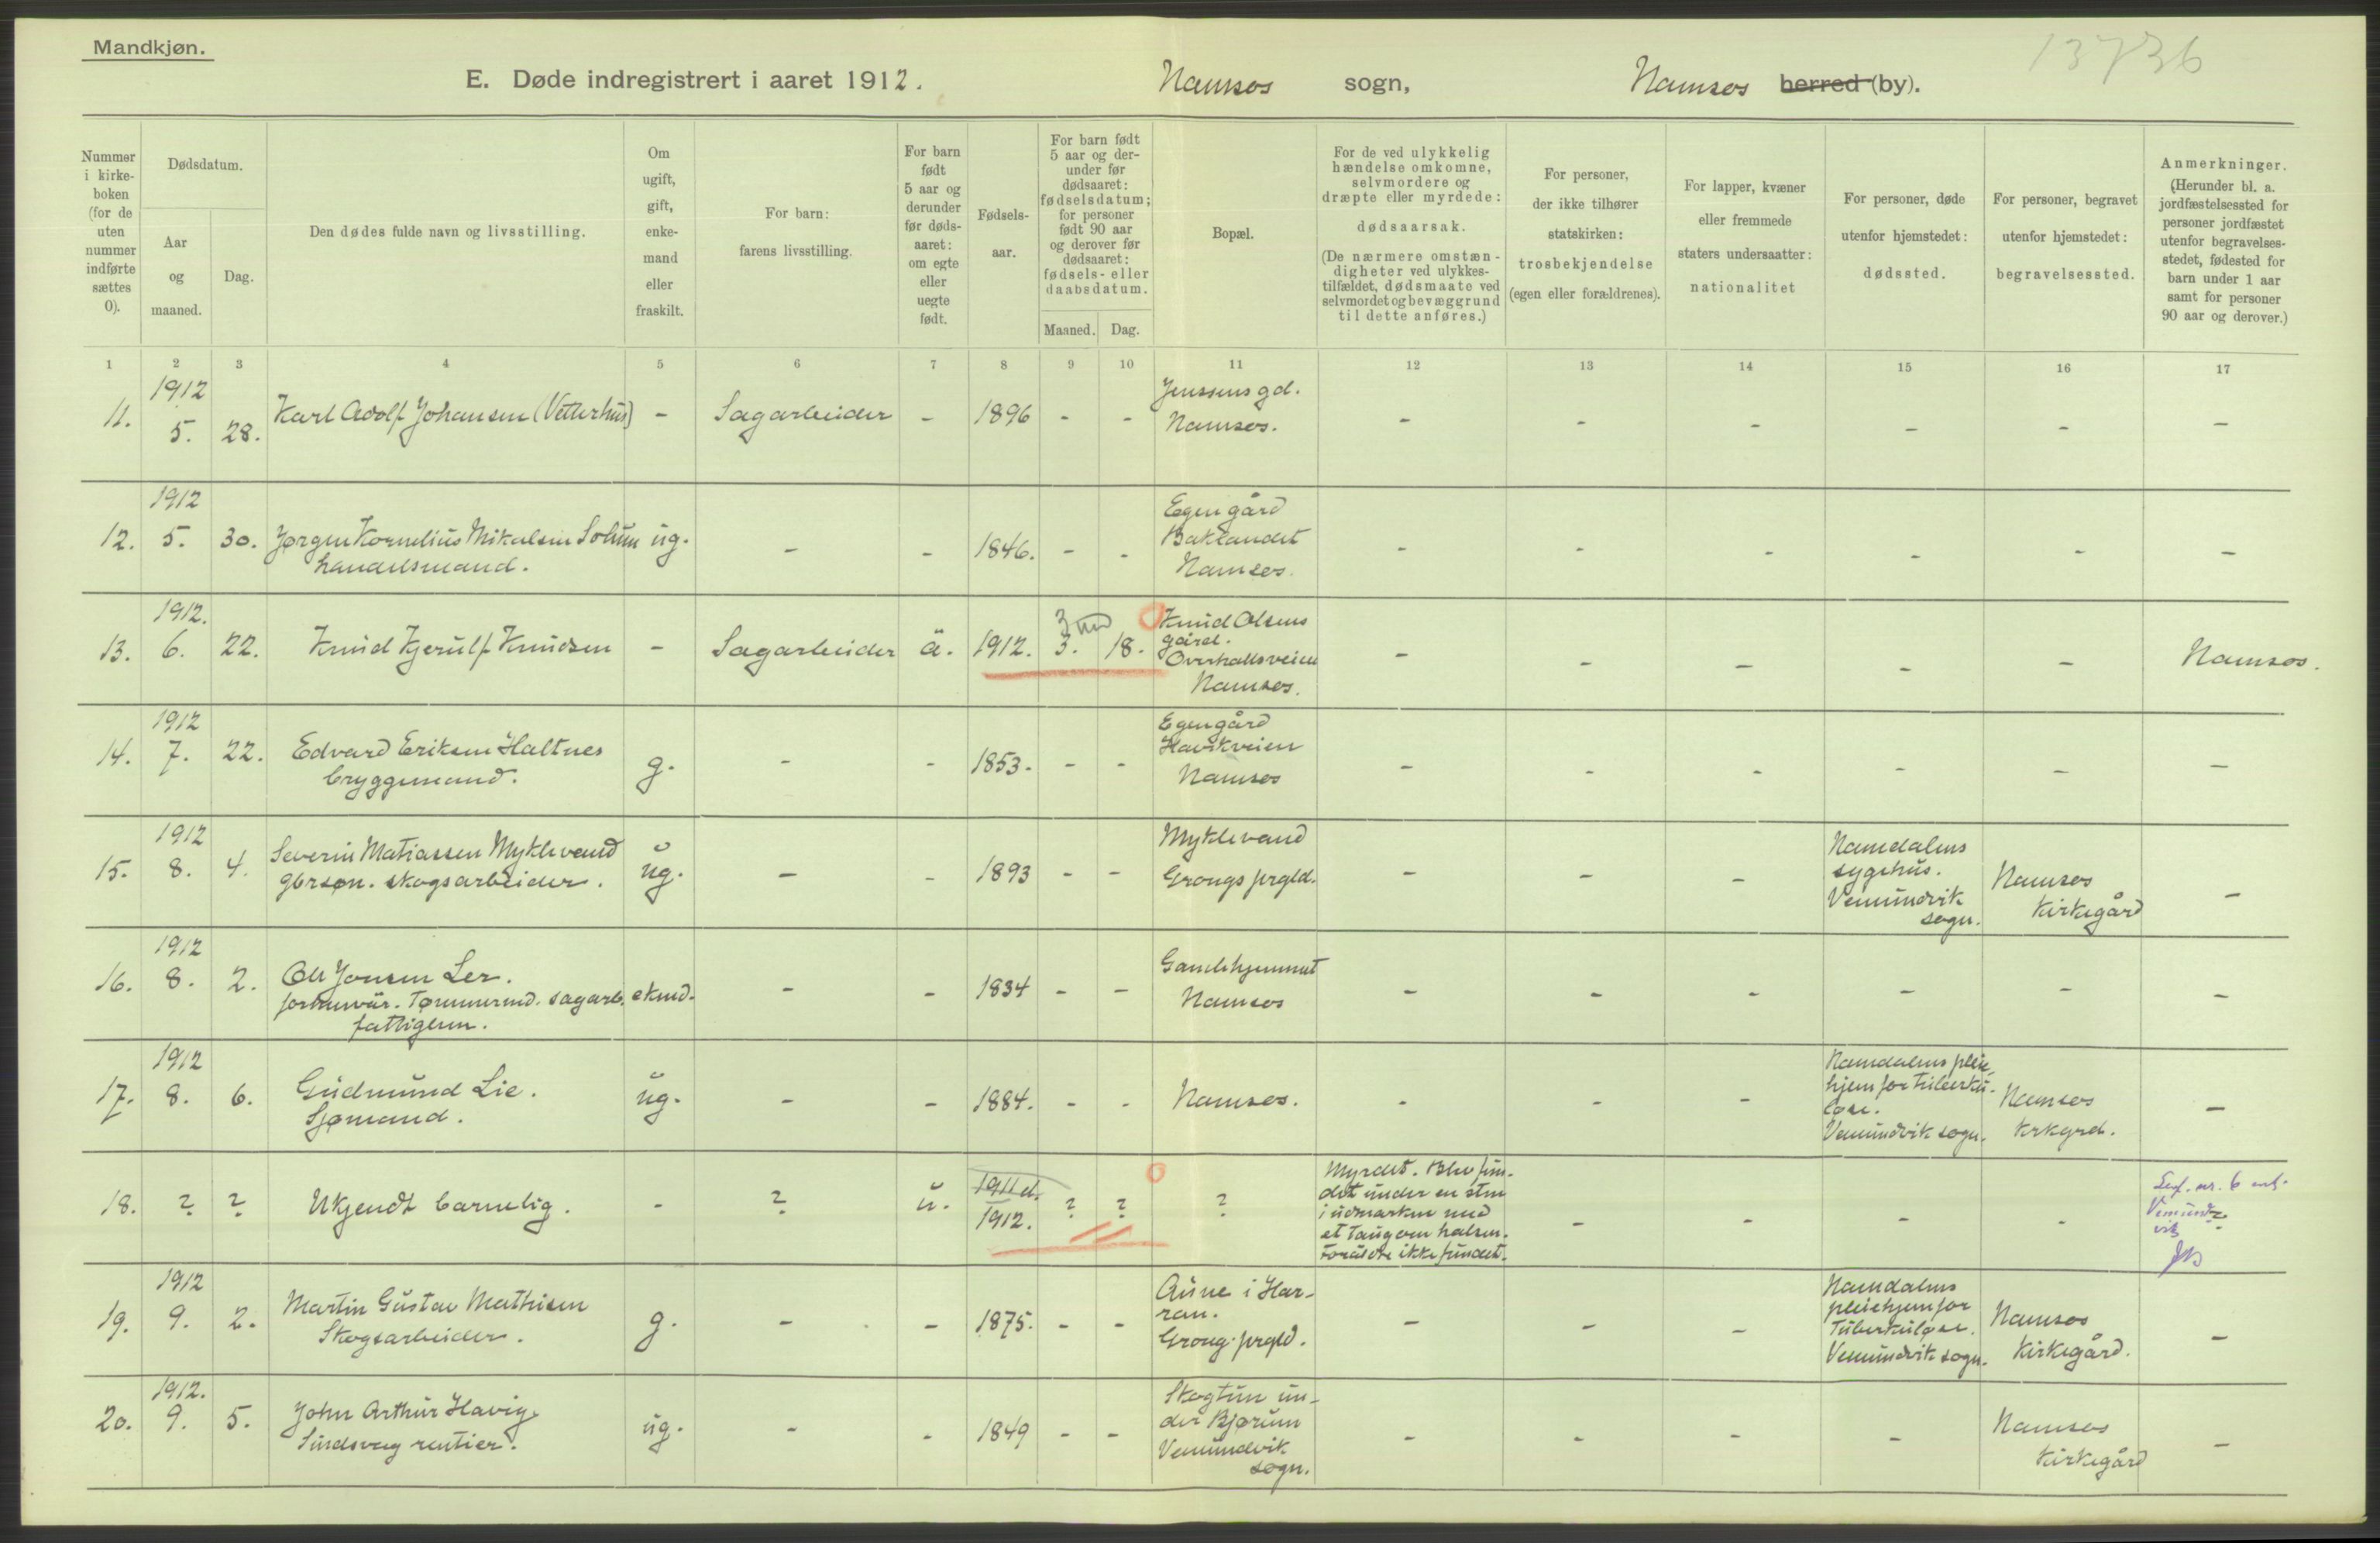 Mandkjøn.
13736
E. Døde indregistrert i aaret 1912. Namsos sogn, Namsos herred (by).
Nummer
i kirke-
boken
(for de
uten
nummer
indførte
sættes
0).
Dødsdatum.
Aar
og
maaned.
Dag.
Den dødes fulde navn og livsstilling.
Om
ugift,
gift,
enke-
mand
eller
fraskilt.
For barn:
farens livsstilling.
For barn
født
5 aar og
derunder
før døds-
aaret:
om egte
eller
uegte
født.
Fødsels-
aar.
For barn født
5 aar og der-
under før
dødsaaret:
fødselsdatum;
for personer
født 90 aar
og derover før
dødsaaret:
fødsels- eller
daabsdatum.
Maaned. Dag.
Bopæl.
For de ved ulykkelig
hændelse omkomne,
selvmordere og
dræpte eller myrdede:
dødsaarsak.
(De nærmere omstæn-
digheter ved ulykkes-
tilfældet, dødsmaate ved
selvmordet og bevæggrund
til dette anføres.)
For personer,
der ikke tilhører
statskirken:
trosbekjendelse
(egen eller forældrenes).
For lapper, kvæner
eller fremmede
staters undersaatter:
nationalitet
For personer, døde
utenfor hjemstedet:
dødssted.
For personer, begravet
utenfor hjemstedet:
begravelsessted.
Anmerkninger.
(Herunder bl. a.
jordfæstelsessted for
personer jordfæstet
utenfor begravelses-
stedet, fødested for
barn under 1 aar
samt for personer
90 aar og derover.)
1 2 3 4 5 6 7 8 9 10 11 12 13 14 15 16 17
1912
11. 5. 28. Karl Adolf Johansen (Vetterhus) - Sagarbeider - 1896 - - Jenssens gd.
Namsos. - - - - - -
1912
12. 5. 30. Jørgen Kornelius Mikalsen Solum ug. - - 1846. - - Egen gård
handelsmand. Baklandet
Namsos. - - - - - -
1912.
13. 6. 22. Knud Kjerulf Knudsen - Sagarbeider ä. 1912. 3. 18. Knud Olsens
gård.
Overhallsveien
Namsos. - - - - - Namsos.
1912
14. 7. 22. Edvard Eriksen Haltnes g. - - 1853. - - Egengård
bryggemand. Havikveien
Namsos - - - - - -
1912
15. 8. 4. Severin Matiassen Myklevand ug. - - 1893 - - Myklevand
gbrsøn. skogsarbeider. Grongs prgld. - - - Namdalens
sygehus.
Vemundvik
sogn. Namsos
Kirkegård -
1912
16. 8. 2. Ole Jonsen Ler. ekmd. - - 1834 - - Gamlehjemmet
forhenvär. Tømmermd. sagarb. Namsos - - - - - -
fattiglem.
1912
17. 8. 6. Gudmund Lie. ug. - - 1884. - - Namsos. - - - Namdalens pleie-
Sjømand. hjem for tuberku-
løse.
Vemundvik sogn. Namsos
Krkgrd. -
18. ? ? Ukjendt barnelig. - ? u. 1911 el.
1912. ? ? ? Myrdet. Blev fun-
det under en sten
i udmarken med
et Taug om halsen.
Foræld­re ikke fundet. - - - - ?
nr. 6
Vemund-
vik
1912
19. 9. 2. Martin Gustav Mathisen g. - - 1875. - - Aune i Har-
Skogsarbeider. ran.
Grong prgld. - - - Namdalens
pleiehjem for
Tuberkuløse.
Vemundvik sogn. Namsos
Kirkegård. -
1912.
20. 9. 5. John Arthur Havig. ug. - - 1849 - - Skogtun un-
rentier. der Bjørum
Vemundvik
sogn. - - - - Namsos
Kirkegård -